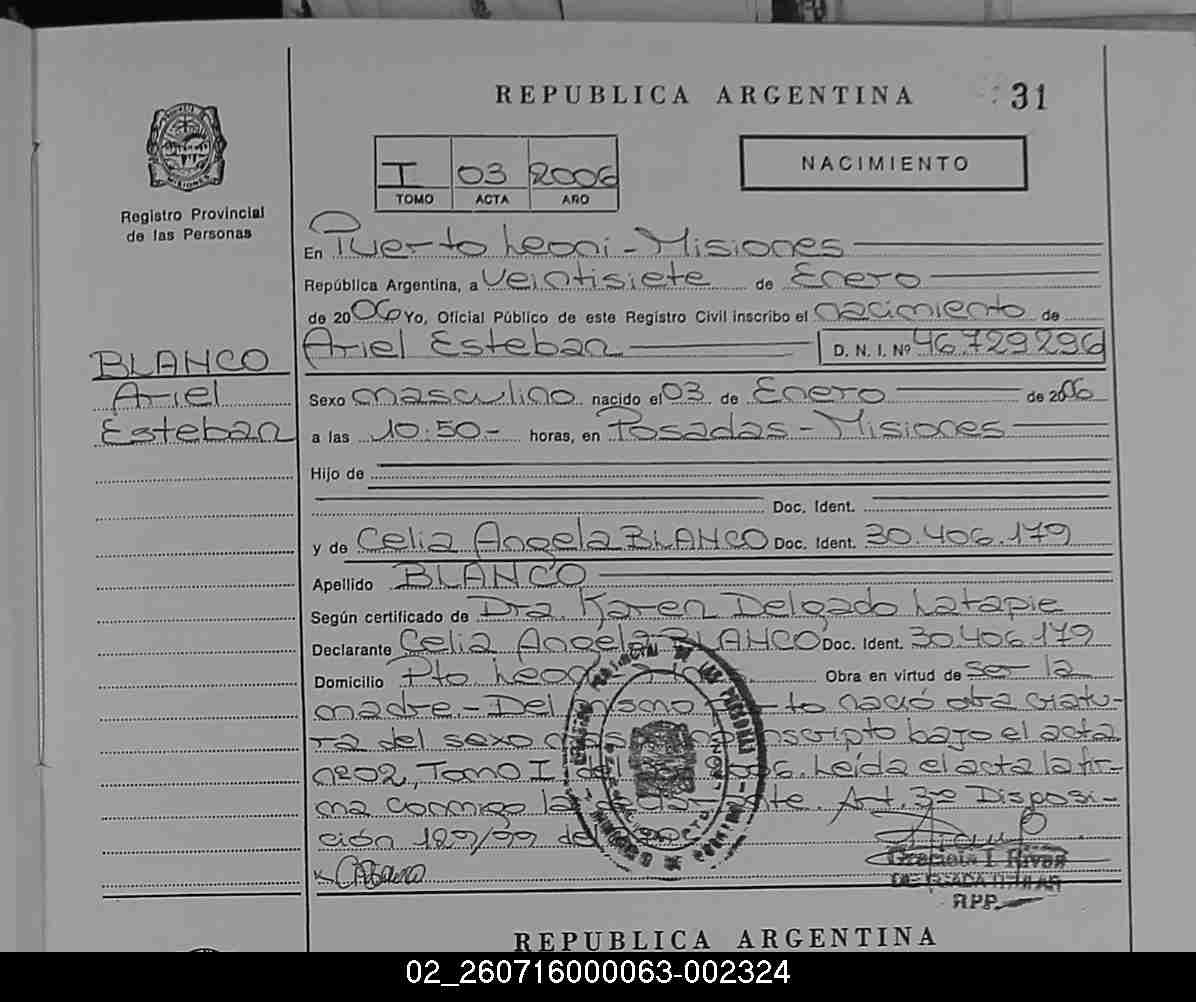 REPUBLICA ARGENTINA
31
I 03 2006
TOMO ACTA AÑO
NACIMIENTO
MISIONES
Registro Provincial
de las Personas
BLANCO
Ariel
Esteban
En Puerto Leoni - Misiones
República Argentina, a Veintisiete de Enero
de 2006 Yo, Oficial Público de este Registro Civil inscribo el nacimiento de
Ariel Esteban D. N. I. Nº 46.729.296
Sexo masculino nacido el 03 de Enero de 2006
a las 10:50- horas, en Posadas - Misiones
Hijo de
Doc. Ident.
y de Celia Angela BLANCO Doc. Ident. 30.406.179
Apellido BLANCO
Según certificado de Dra. Karen Delgado Latapie
Declarante Celia Angela BLANCO Doc. Ident. 30.406.179
Domicilio Pto Leoni Obra en virtud de ser la
madre.- Del mismo parto nació otra criatu-
ra del sexo inscripto bajo el acta
nº02, Tomo I del 2006. Leída el acta la fir-
ma conmigo la declarante. Art. 3º Disposi-
ción
Graciela I. Rivas
DELEGADA TITULAR
RPP
REPUBLICA ARGENTINA
02_260716000063-002324